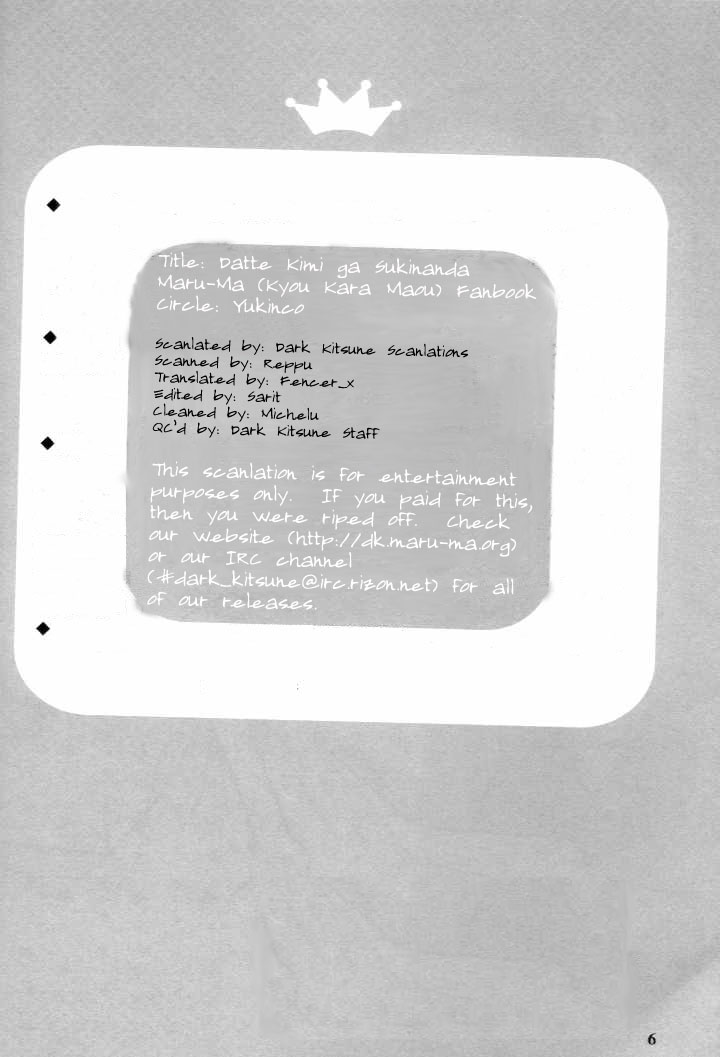 Title: Datte Kimi ga Sukinanda
Maru-Ma (Kyou Kara Maou) Fanbook
Circle: Yukinco
Scanlated by: Dark Kitsune Scanlations
Scanned by: Reppu
Translated by: Fencer_x
Edited by: Sarit
Cleaned by: Michelu
QC'd by: Dark Kitsune Staff
This scanlation is for entertainment
purposes only. If you paid for this,
then you were riped off. Check
our website (http://dk.maru-ma.org)
or our IRC channel
(#dark_kitsune@irc.rizon.net) for all
of our releases.
6